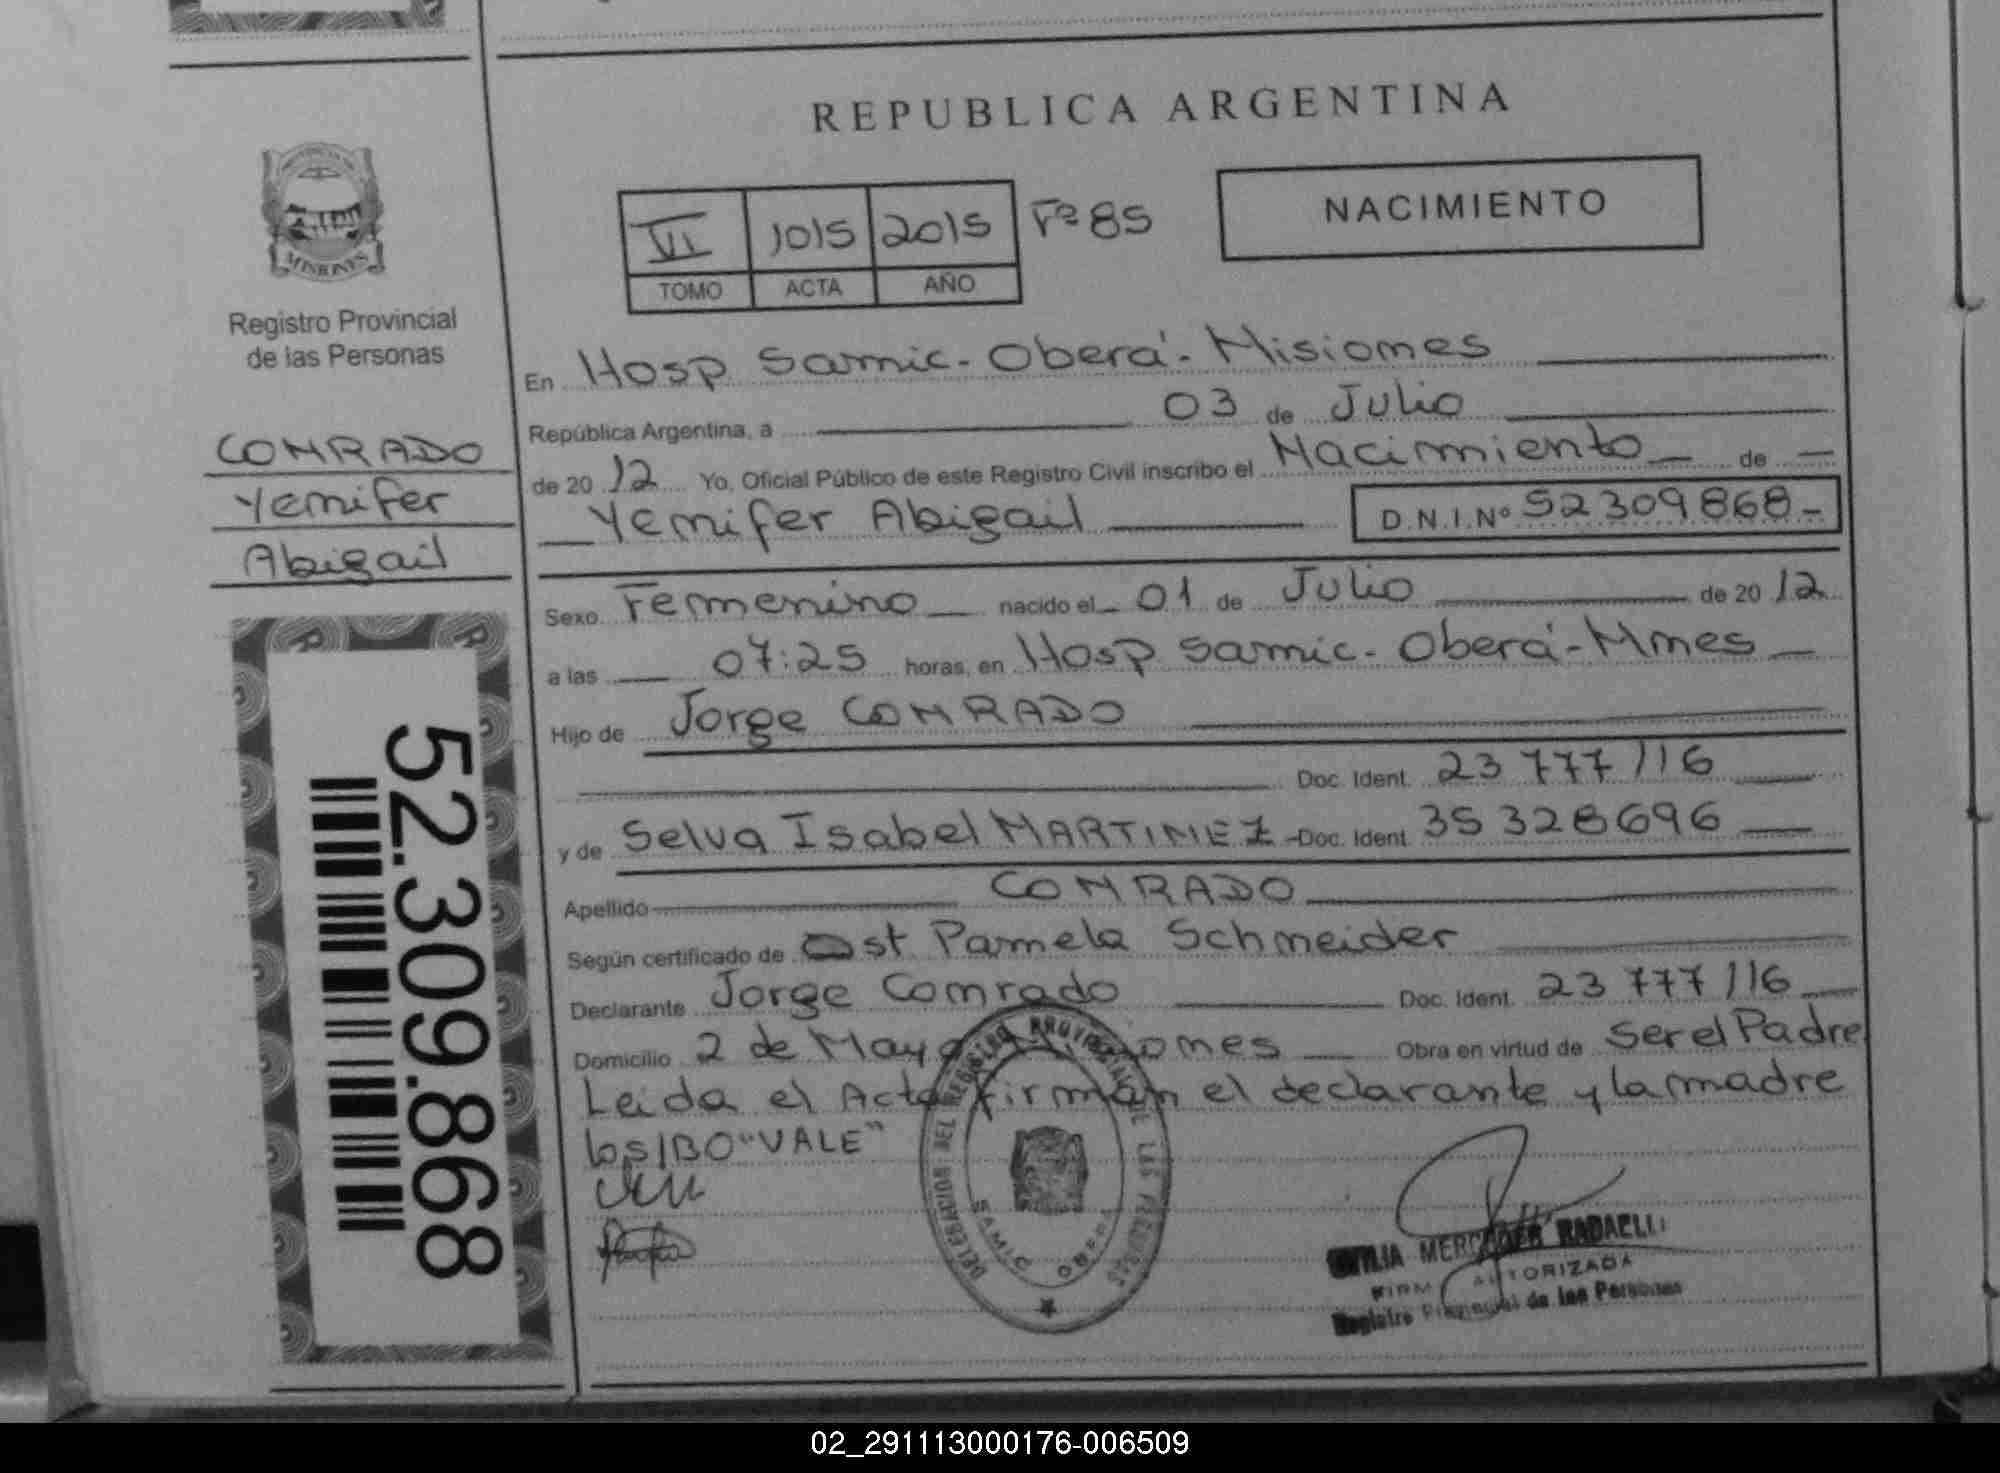 REPUBLICA ARGENTINA
NACIMIENTO
VI 1015 2015 Fº 85
TOMO ACTA AÑO
MISIONES
Registro Provincial
de las Personas
CONRADO
Yenifer
Abigail
52.309.868
En Hosp Samic - Oberá - Misiones
República Argentina, a 03 de Julio
de 20 12 Yo, Oficial Público de este Registro Civil inscribo el Nacimiento de
Yenifer Abigail D.N.I.Nº 52309868-
Sexo Femenino nacido el 01 de Julio de 20 12
a las 07:25 horas, en Hosp Samic - Oberá - Mnes
Hijo de Jorge CONRADO
Doc. Ident. 23 777 116
y de Selva Isabel MARTINEZ - Doc. Ident. 35 328696
Apellido CONRADO
Según certificado de Ost Pamela Schneider
Declarante Jorge Conrado Doc. Ident. 23 777 116
Domicilio 2 de Mayo Misiones Obra en virtud de ser el Padre
Leida el Acta firman el declarante y la madre
lo s/BO "VALE"
DELEGACION DEL REGISTRO PROVINCIAL DE LAS PERSONAS
SAMIC OBERA
MERCEDES RADAELLI
FIRMA AUTORIZADA
Registro Provincial de las Personas
02_291113000176-006509